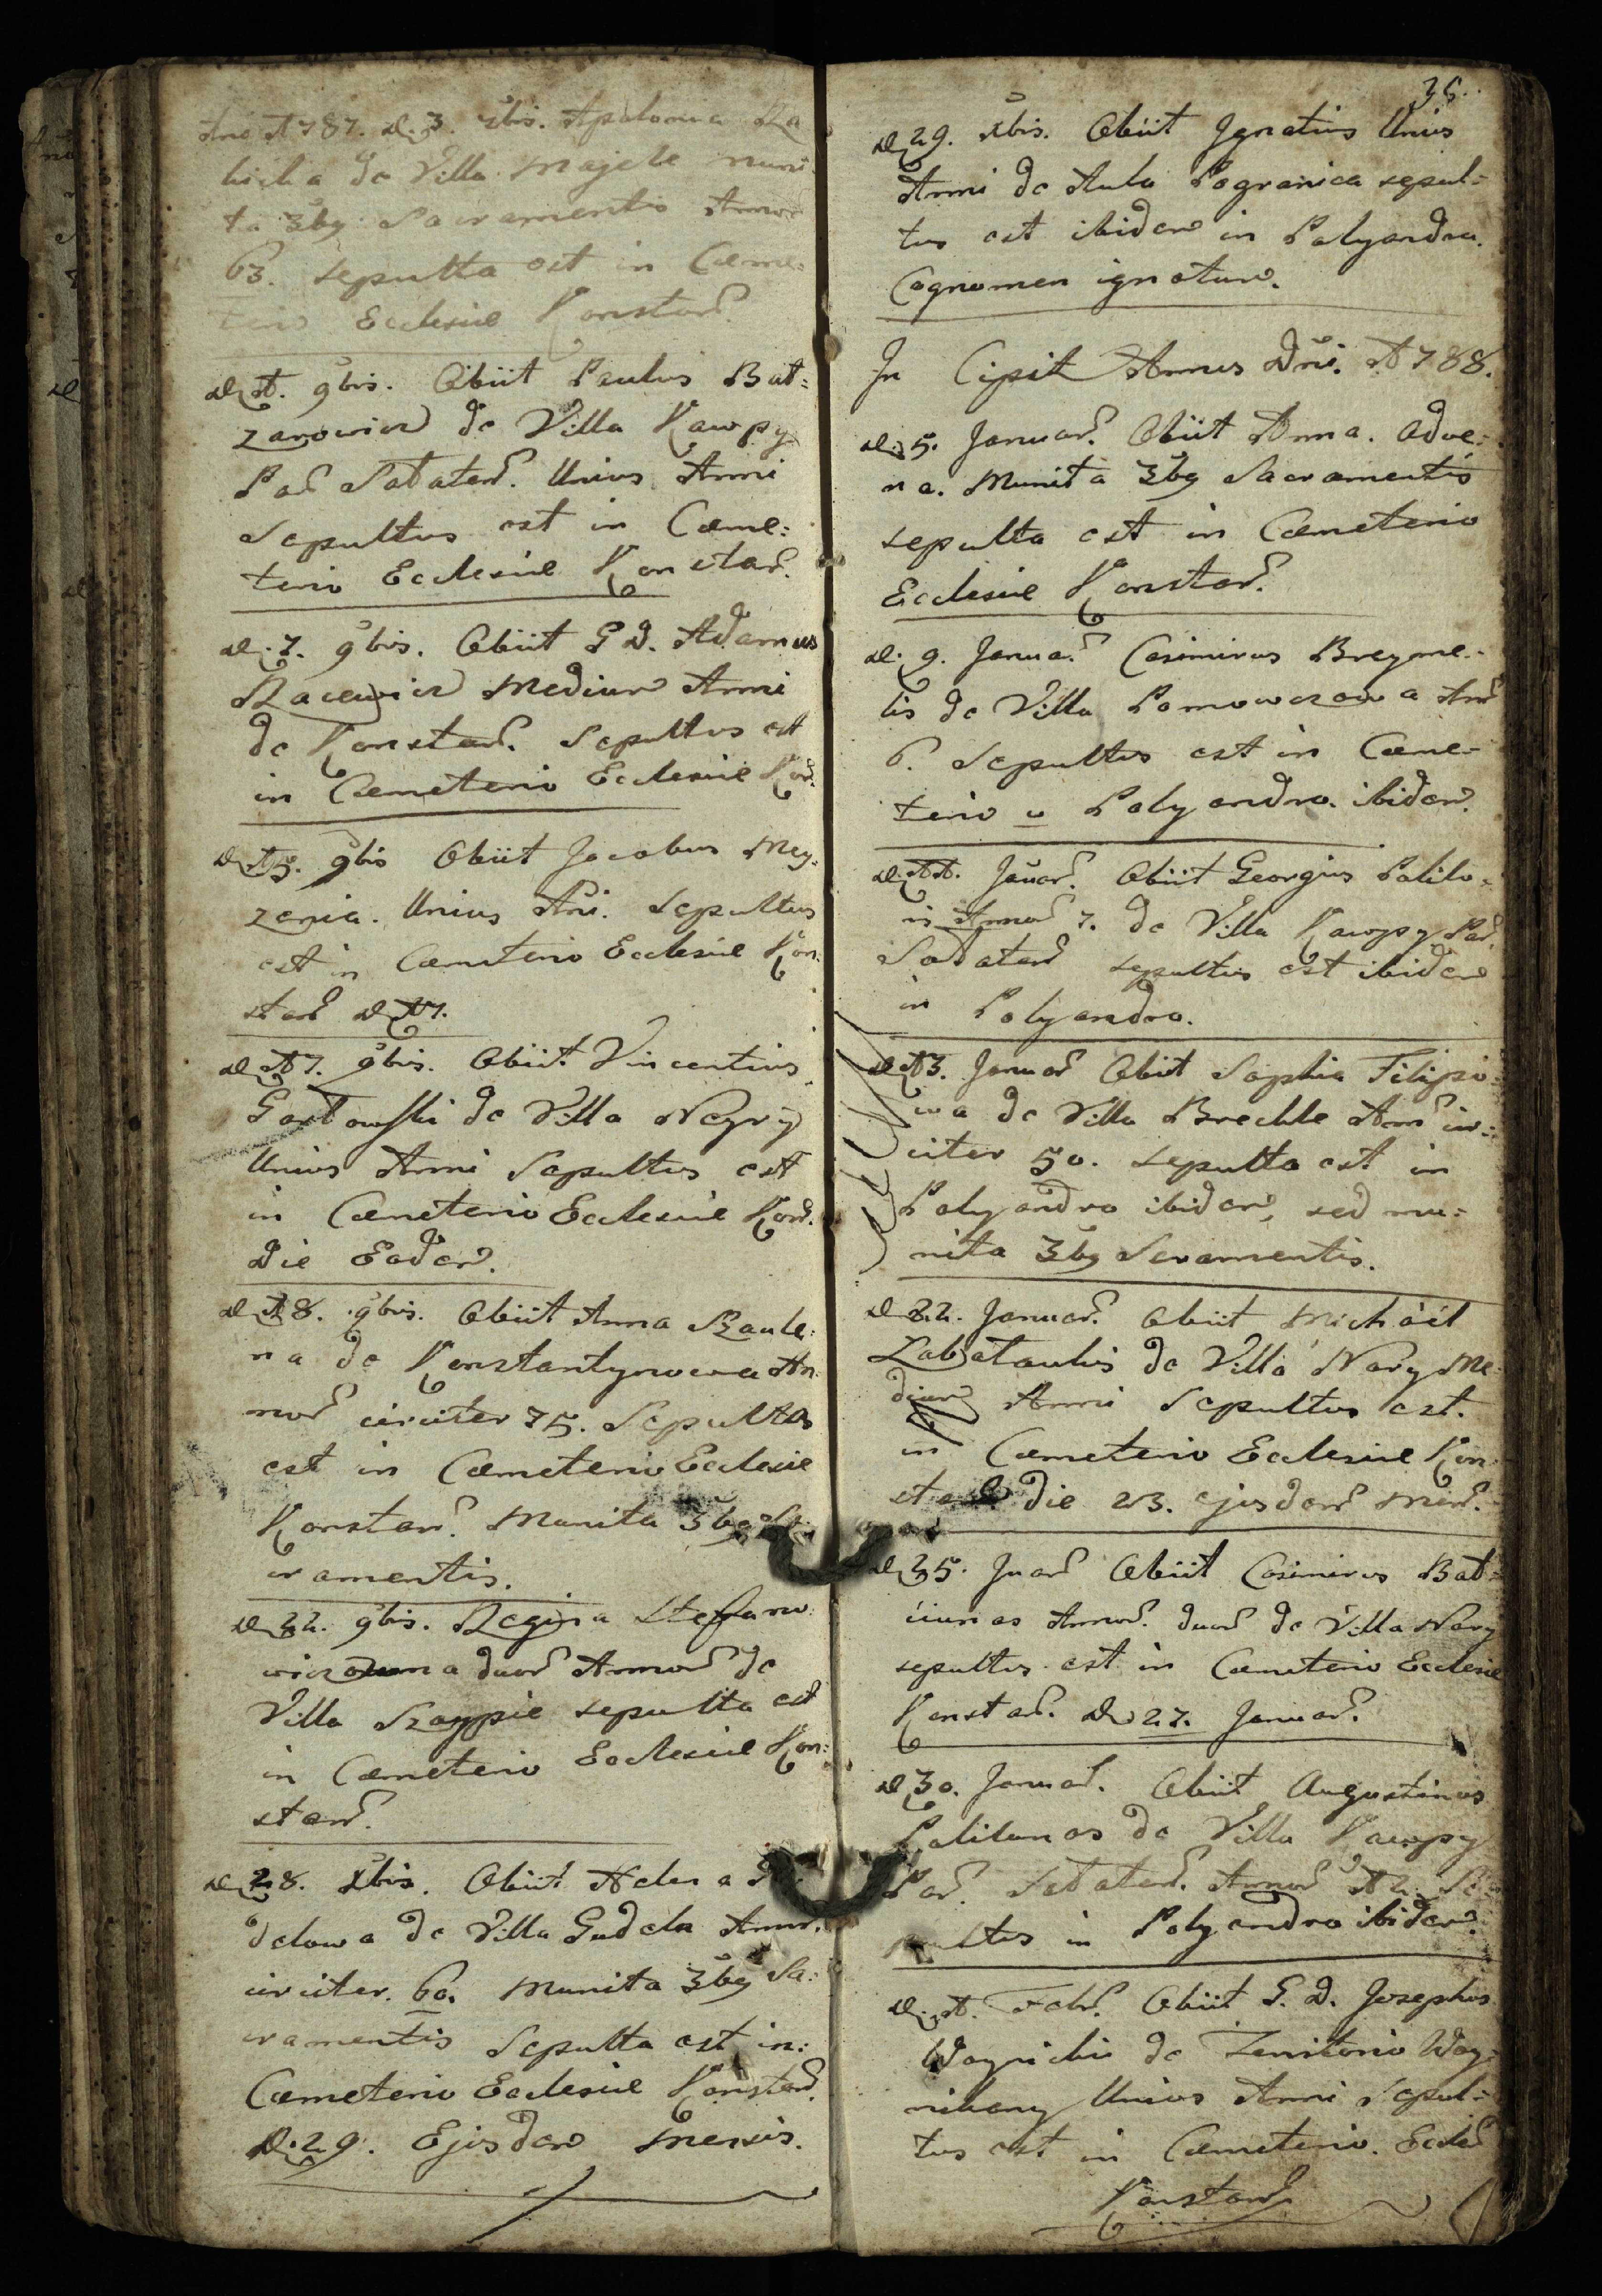 Ano 1787. d. 3. xbris. Apolonia Ra
licka de Villa Majele muni
ta 3bg Sacramentis Annor
63. sepulta est in Cæme-
terio Ecclesiæ Konstan.
d. 1. 9bris. Obiit Paulus Bat=
zarowicz de Villa Kawpy
Par Satatens. Unius Anni
Sepultus est in Cæme:
terio Ecclesiæ Konstan.
d. 7. 9bris. Obiit G D. Adamus
Racewicz Medium Anni
de Konstan. Sepultus est
in Cæmeterio Ecclesiæ Kon.
d. 15. 9bris Obiit Jacobus Mey-
zenia. Unius Ani. Sepultus
est in Cæmeterio Ecclesiæ Kon:
stan d 17.
d. 17. 9bris. Obiit Vincentius
Gostowski de Villa Neyry
Unius Anni Sepultus est
in Cæmeterio Ecclesiæ Kon.
Die Eadem.
d. 18. 9bris. Obiit Anna Szaule:
na de Konstantynowa An
nor circiter 75. Sepulta
est in Cæmeterio Ecclesiæ
Konstan. Munita 3bg Sa
cramentis.
d. 22. 9bris. Regina Stefano
wiczowna duor Annor de
Villa Szoypie sepulta est
in Cæmeterio Ecclesiæ Kon:
stan.
d. 28. xbris. Obiit Helena
delowa de Villa Gudele Annor.
circiter. 60. Munita 3bg Sa:
cramentis Sepulta est in:
Cæmeterio Ecclesiæ Konstan.
D. 29. Ejusdem Mensis.
35.
d 29. xbris. Obiit Ignatius Unius
Anni de Aula Pogranica sepul=
tus est ibidem in Polyandro.
Cognomen ignotum.
In Cipit Annus Dni. 1788.
d. 5. Januar. Obiit Anna. Adve:
na. Munita 3bg Sacramentis
sepulta est in Cæmeterio
Ecclesiæ Konstan.
d. 9. Janua. Casimirus Breyme-
lis de Villa Pomowczowa Ann
6. Sepultus est in Cæme-
terio u Polyandro. ibidem.
d. 11. Januar. Obiit Georgius Palilo-
is Annor 7. de Villa Kawpy Par.
Satatens sepultus est ibidem
in Polyandro.
d. 13. Januar Obiit Sophia Filipo
wa de Villa Brekle Ann cir-
citer 50. sepulta est in
Polyandro ibidem, sed mu=
nita 3bg Scramentis.
d. 22. Januar. Obiit Michaël
Labataulis de Villa Nary Me
dium Anni Sepultus est.
in Cæmeterio Ecclesiæ Kon
stan die 23. ejusdem Mens.
d 25. Juar Obiit Casimirus Bat=
iunas Annor. duor de Villa Nary
sepultus est in Cæmeterio Ecclesiæ
Konstan. D. 27. Januar.
d 30. Januar. Obiit Augustinus
Palilunas de Villa Kawpy
Par. Satatens. Annor 12. Se
pultus in Polyandro ibidem.
d. 1. Febr. Obiit G. D. Josephus
Woynicki de Territorio Woy-
nikany Unius Anni Sepul=
tus est in Cæmeterio. Eccles
Konstan.